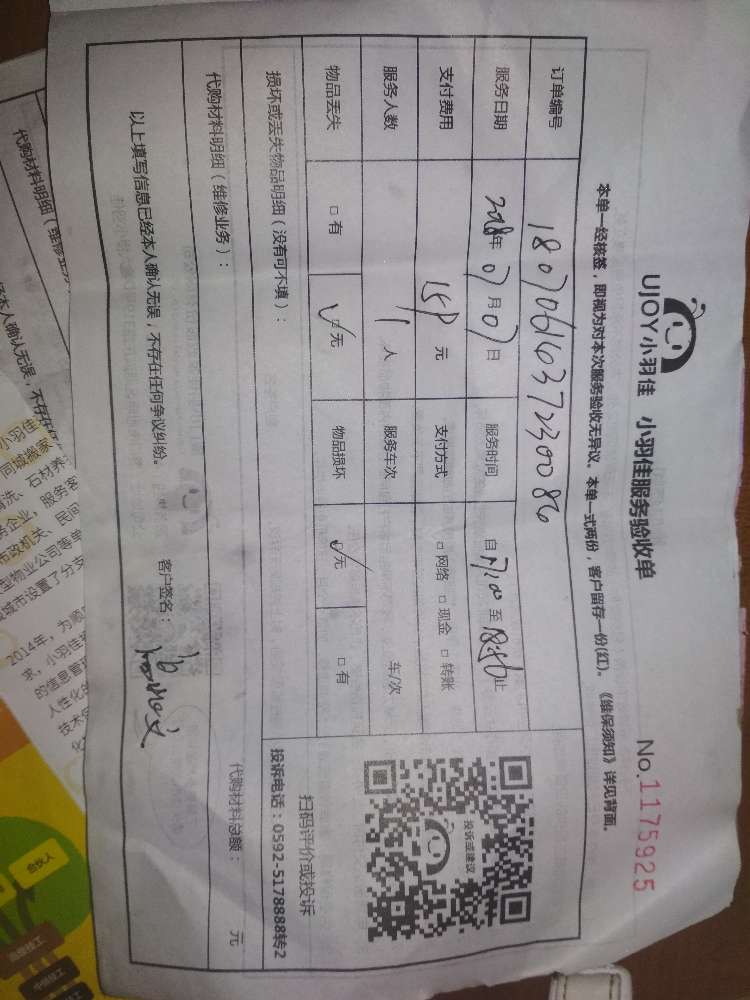 UJOY小羽佳 小羽佳服务验收单
No.1175925
本单一经核签，即视为对本次服务验收无异议。本单一式两份，客户留存一份(红)。《维保须知》详见背面。
订单编号 1807061637230086
服务日期 2018年 07月 07日 服务时间 自 17:00 至 止
支付费用 元 支付方式 □网络 □现金 □转账
服务人数 1人 服务车次 车/次
物品丢失 □有 ☑无 物品损坏 ☑无 □有
投诉或建议
扫码评价或投诉
投诉电话：0592-5178888转2
损坏或丢失物品明细（没有可不填）：
代购材料明细（维修业务）： 代购材料总额： 元
以上填写信息已经本人确认无误，不存在任何争议纠纷。 客户签名：
代购材料明细（维修业
本人确认无误，不存在
小羽佳
同城搬家
清洗、石材养
务企业，服务客
市政机关、民间
型物业公司等单
城市设置了分支
2014年，为顺
求，小羽佳
的信息管
人性化的
技术
化
合伙人
高级技工
中级技工